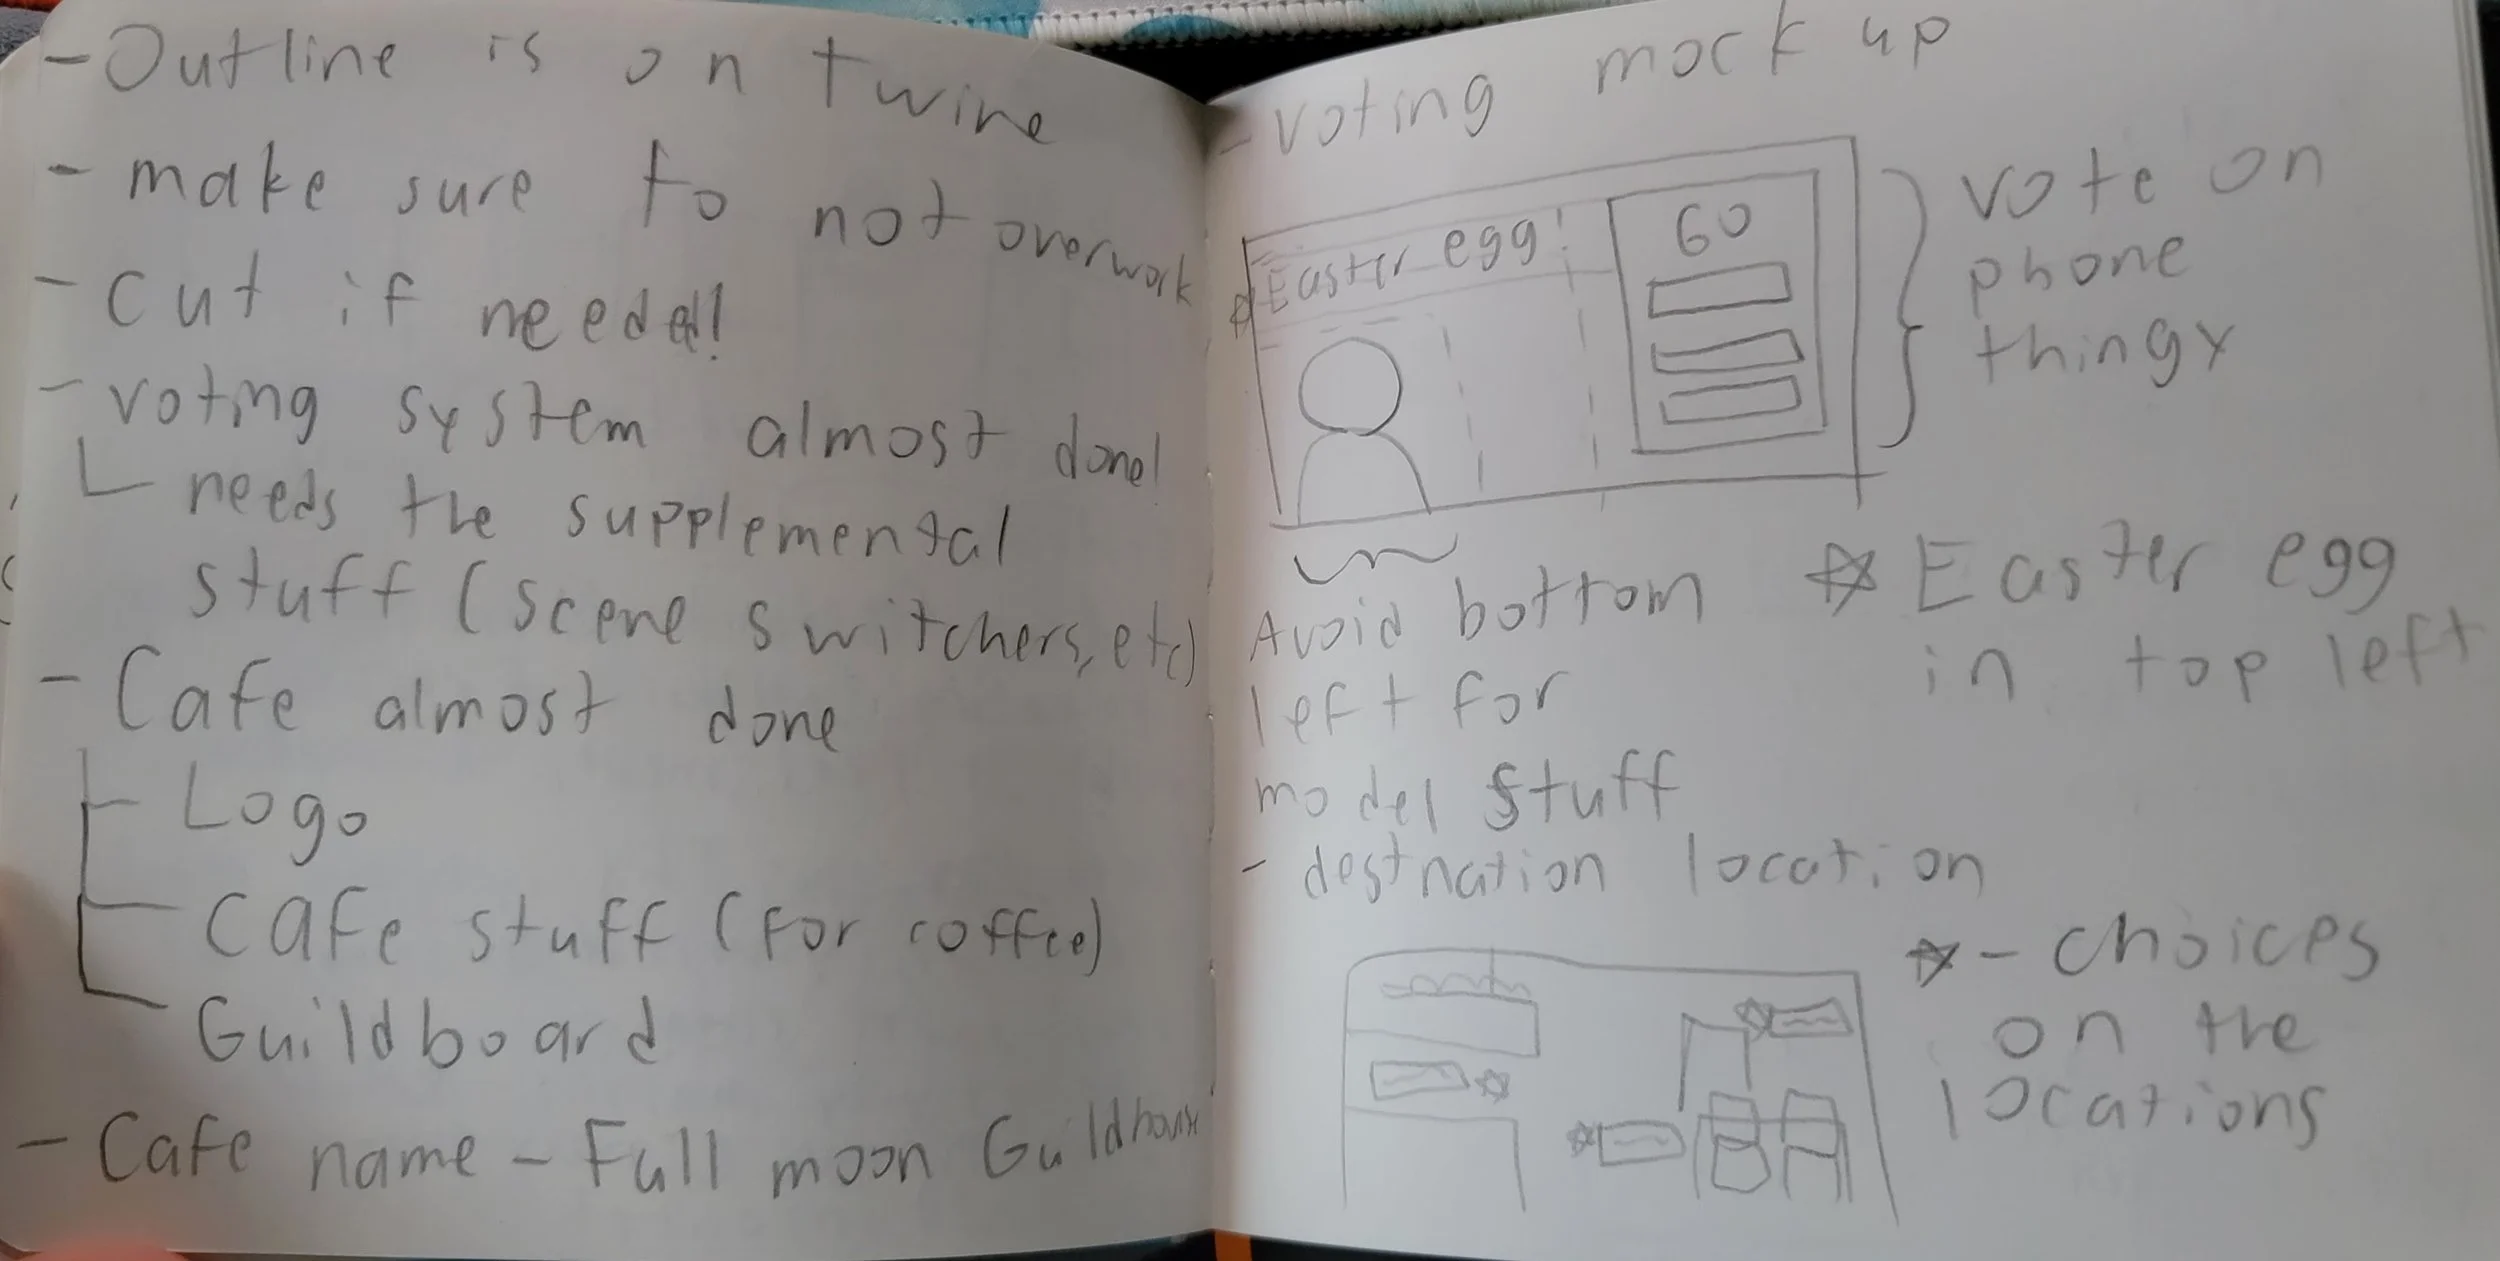 - Outline is on twine
- make sure to not overwork
- cut if needed!
- voting system almost done!
needs the supplemental
stuff (scene switchers, etc)
- Cafe almost done
Logo
Cafe stuff (for coffee)
Guildboard
- Cafe name - Full moon Guildhouse
- voting mock up
Easter egg!
60
vote on
phone
thingy
Avoid bottom
left for
model stuff
☆ Easter egg
in top left
- destnation location
☆ - choices
on the
locations